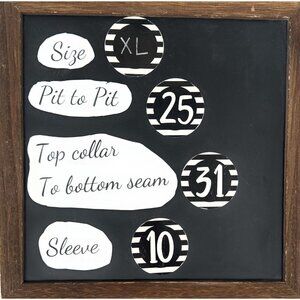 Size XL
Pit to Pit 25
Top collar
To bottom seam 31
Sleeve 10